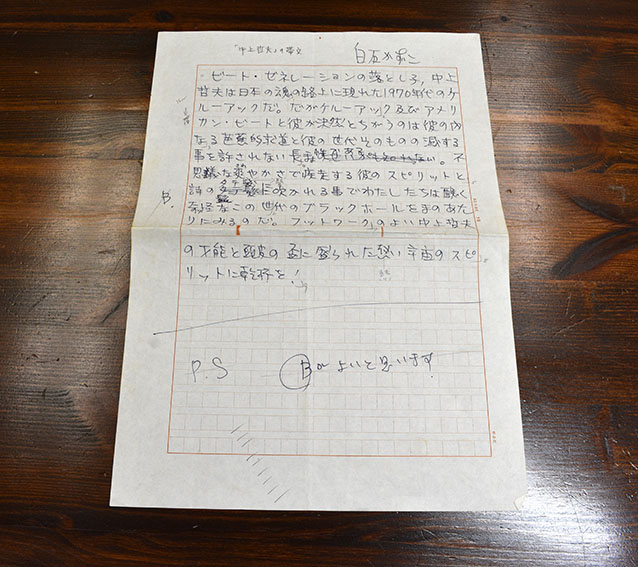 「中上哲夫」の帯文
白石かずこ
ビート・ゼネレーションの落とし子、中上
哲夫は日本の魂の路上に現れた1970年代のケ
ルーアックだ。だがケルーアック及びアメリ
カン・ビートと彼が決然とちがうのは彼の内
なる芭蕉的求道と彼の世代そのものの滅する
事を許されない長
不
思議な爽やかさで疾走する彼のスピリットと
詩の
に吹かれる事でわたしたちは驚く
なこの世代のブラックホールをまのあた
りにみるのだ。フットワークのよい中上哲夫
の才能と頭皮の盃に盛られた熱い宇宙のスピ
リットに乾杯を!
B.
P.S
Bがよいと思います